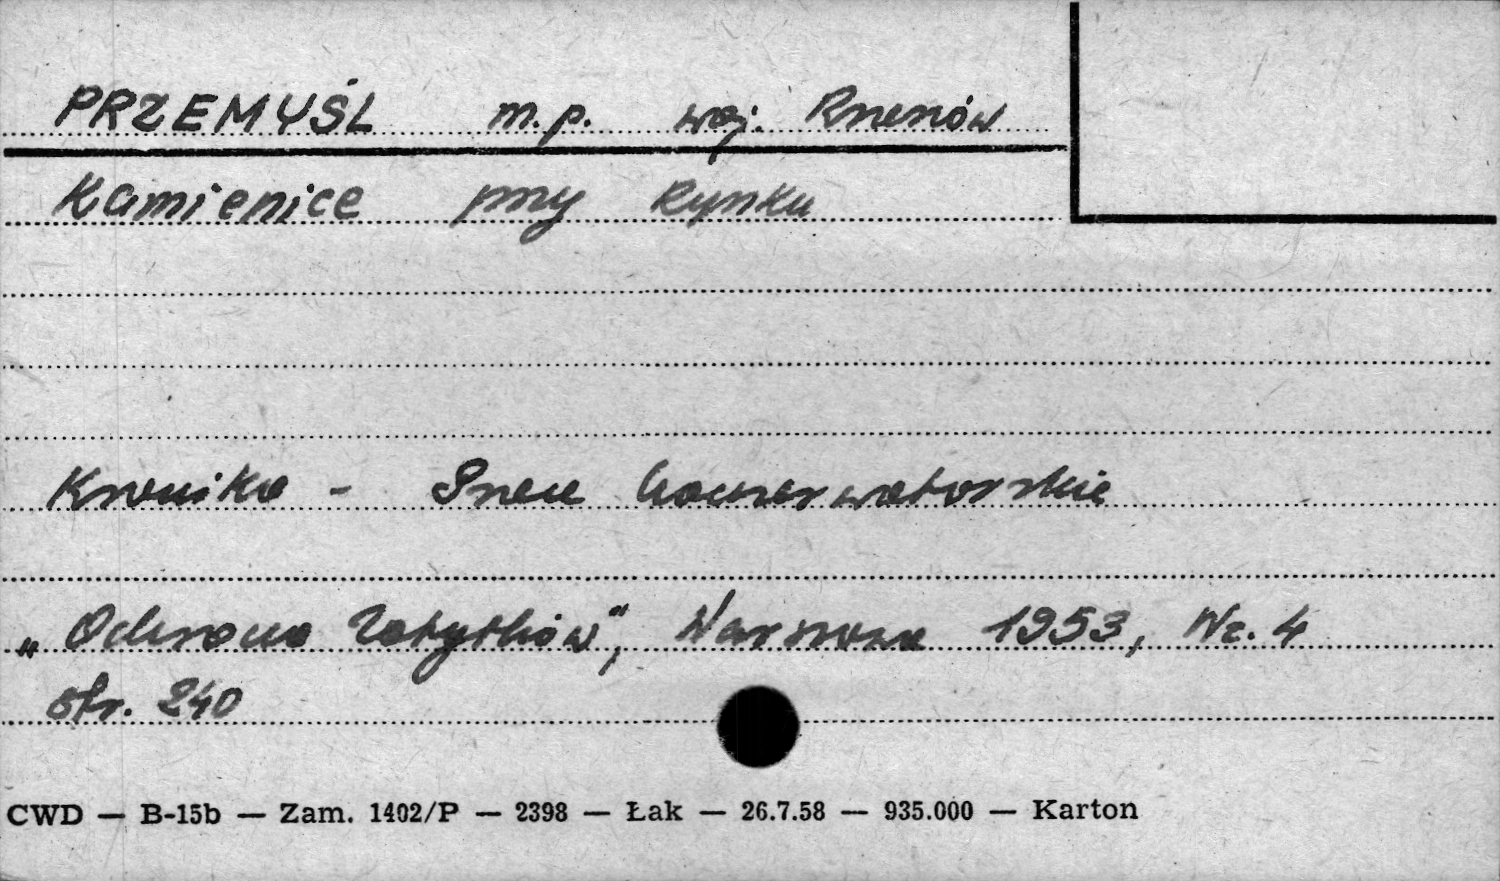 PRZEMYŚL m.p. woj. Rzeszów
Kamienice przy Rynku
Kronika - Prace konserwatorskie
„Ochrona Zabytków", Warszawa 1953, Nr. 4
str. 240
CWD — B-15b — Zam. 1402/P — 2398 — Łak — 26.7.58 — 935.000 — Karton